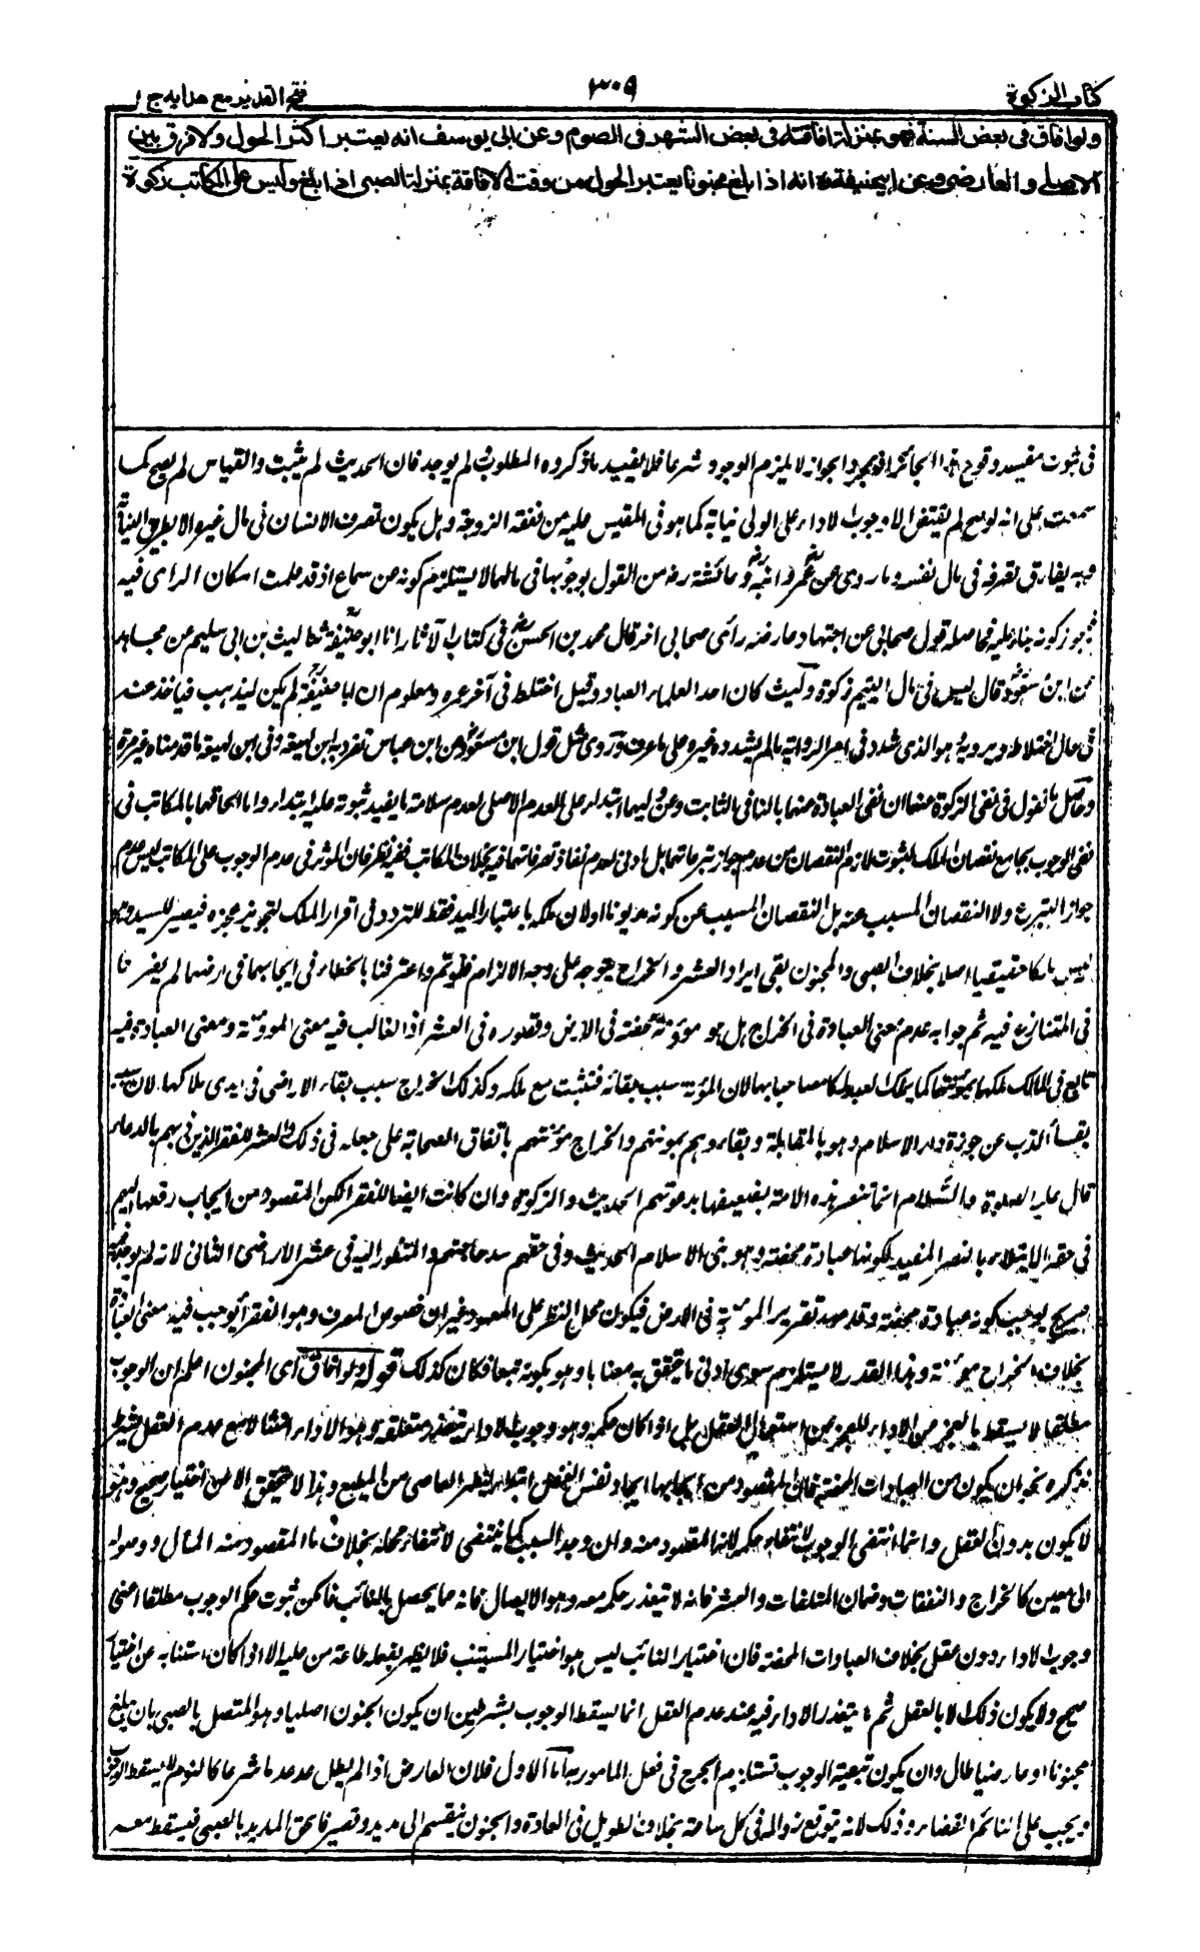 كتاب الزكوة
٣٠٩
فتح القدير مع هدايه ج ١
ولو افاق فى بعض السنة فهو بمنزلة افاقته فى بعض الشهر فى الصوم وعن ابى يوسف انه يعتبر اكثر الحول ولا فرق بين
الاصلى والعارضى وعن ابيحنيفةرح انه اذا بلغ مجنونا يعتبر الحول من وقت الافاقة بمنزلة الصبى اذا بلغ وليس على المكاتب زكوة
فى ثبوت مفيد وقوع الجائز فلا يفيد ماذكروه المطلوب لم يوجد فان الحديث لم يثبت والقياس لم يصح كما
سمعت على انه لو صح لم يقتض الا وجوب الاداء على الولى نيابة كما هو فى المقيس عليه من نفقة الزوجة وهل يكون تصرف الانسان فى مال غيره الا بطريق النيابة
وبه يفارق تصرفه فى مال نفسه وما روى عن عمر وابنه وعائشة رض من القول بوجوبها فى مالهما لا يستلزم كونه عن سماع اذ قد علمت امكان الراى فيه
فيجوز كونه بناء عليه فحاصله قول صحابى عن اجتهاد عارضه رأى صحابى اخر قال محمد بن الحسن فى كتاب الآثار انا ابو حنيفة ثنا ليث بن ابى سليم عن مجاهد
عن ابن مسعود قال ليس فى مال اليتيم زكوة وليث كان احد العلماء العباد وقيل اختلط فى آخر عمره ومعلوم ان ابا حنيفة لم يكن ليذهب فياخذ عنه
فى حال اختلاطه ويرويه وهو الذى شدد فى امر الرواية مالم يشدده غيره على ما عرف وروى مثل قول ابن مسعود عن ابن عباس تفرد به ابن لهيعة وفى ابن لهيعة ما قدمناه غير مرة
وحاصل ما نقول فى نفى الزكوة عنهما ان نفى العبادة عنهما بالنافى الثابت وعن وليهما ابتداء على العدم الاصلى لعدم سلامة ما يفيد ثبوته عليه ابتداء واما الحاقهما بالمكاتب فى
نفى الوجوب بجامع نقصان الملك لثبوت لازم النقصان من عدم جواز تبرعاتهما بل ادنى لعدم نفاذ تصرفاتهما فيه بخلاف المكاتب ففيه نظر فان المؤثر فى عدم الوجوب على المكاتب ليس عدم
جواز التبرع ولا النقصان المسبب عنه بل النقصان المسبب عن كونه مديونا اولان ملكه باعتبار اليد فقط للتردد فى اقرار الملك لتجويز عجزه فيصير للسيد وهو
ليس ملكا حقيقيا اصلا بخلاف الصبى والمجنون بقى ايراد العشر والخراج يتوجه على وجه الالزام فلو تم واعترفنا بالخطاء فى ايجابهما فى ارضهما لم يضرنا
فى المتنازع فيه ثم جوابه عدم معنى العبادة فى الخراج بل هو مؤونة محضة فى الارض وقصوره فى العشر اذ الغالب فيه معنى المؤونة ومعنى العبادة فيه
تابع فى المالك ملكهما بمؤنتهما كما يملك العبد ملكا مصاحبا بها لان المؤنة سبب بقائه فتثبت مع ملكه وكذلك الخراج سبب بقاء الاراضى فى ايدى ملاكها لان سببه
بقاء الذب عن حوزة دار الاسلام وهو بالمقابلة وبقاؤهم بمونتهم والخراج مؤنتهم باتفاق الصحابة على جعله فى ذلك والعشر للفقراء لذبهم بالدعاء
قال عليه الصلوة والسلام انما تنصر هذه الامة بضعيفها بدعوتهم الحديث والزكوة وان كانت ايضا للفقراء لكن المقصود من ايجاب دفعها اليهم
فى حقه الابتلاء بالنص المفيد لكونها عبادة محضة وهو بنى الاسلام الحديث وفى حقهم سد حاجتهم والمنظور اليه فى عشر الاراضى الثانى لانه لم يوجد فيه
صريح يوجب كونه عبادة محضة وقد عهد تقرير المؤنة فى الارض فيكون محل النظر على المعهود غير ان خصوص المصرف وهو الفقراء يوجب فيه معنى العبادة
بخلاف الخراج مؤنة وهذا القدر لا يستلزم سوى ادنى ما يتحقق به معناها وهو بكونه تبعا فكان كذلك قوله ولو افاق اى المجنون اعلم ان الوجوب
مطلقا لا يسقط بالعجز عن الاداء للعجز عن استعمال العقل بل اذا كان حكمه وهو وجوب الاداء يتعذر متعلقه وهو الاداء امتثالا مع عدم العقل بشرط
نذكره نحو ان يكون من العبادات المحضة فان المقصود من ايجابها ايجاد نفس الفعل ابتلاء ليظهر العاصى من المطيع وهذا لا يتحقق الا عن اختيار صحيح وهو
لا يكون بدون العقل وانما انتفى الوجوب لانتفاء حكمه لانه المقصود منه وان وجد السبب كما ينتفى لانتفاء محله بخلاف ما المقصود منه المال ووصوله
الى معين كالخراج والنفقات وضمان المتلفات والعشر فانه لا يتعذر حكمه معه وهو الايصال فانه مما يحصل بالنائب فامكن ثبوت حكم الوجوب مطلقا اعنى
وجوب الاداء دون عقل بخلاف العبادات المحضة فان اختيار النائب ليس هو اختيار المستنيب فلا يظهر بفعله طاعة من عليه الا اذا كان استنابه عن اختيار
صحيح ولا يكون ذلك الا بالعقل ثم ما يتعذر الاداء فيه عند عدم العقل انما يسقط الوجوب بشرطين ان يكون الجنون اصليا وهو المتصل بالصبى بان يبلغ
مجنونا او عارضيا طال وان يكون تبعية الوجوب تستلزم الحرج فى فعل المامور به اما الاول فلان العارض اذا لم يطل عد عدما شرعا كالنوم لا يسقط الوجوب
ويجب على النائم القضاء وذلك لانه يتوقع زواله فى كل ساعة بخلاف الطويل فى العادة والجنون ينقسم الى مديد وقصير فالحق المديد بالصبى فيسقط معه